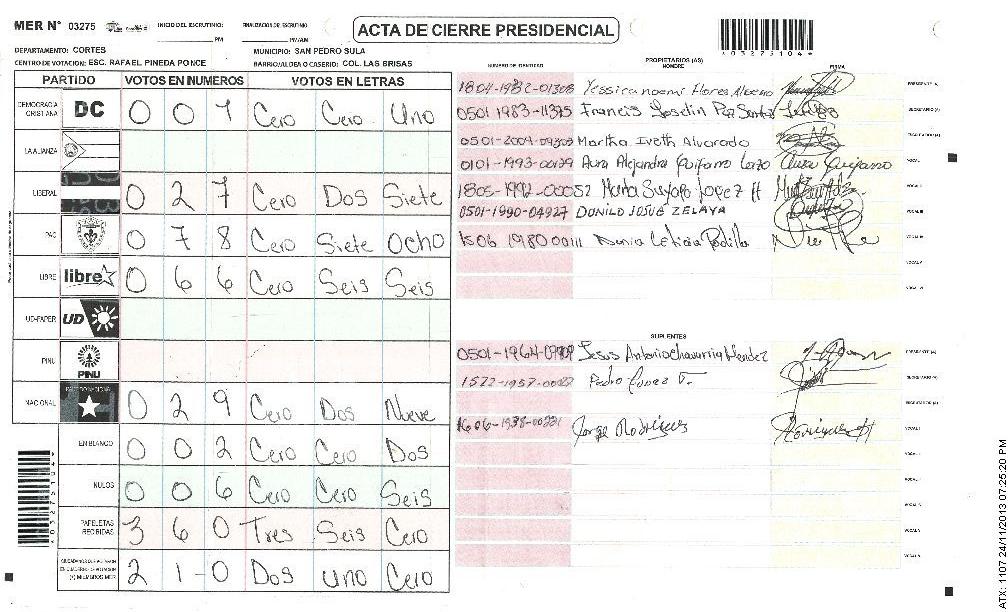 MER N° 03275 INICIO DEL ESCRUTINIO: PM FINALIZACION DE ESCRUTINIO PM/AM
ACTA DE CIERRE PRESIDENCIAL
03275104
DEPARTAMENTO: CORTES MUNICIPIO: SAN PEDRO SULA
CENTRO DE VOTACION: ESC. RAFAEL PINEDA PONCE BARRIO/ALDEA O CASERIO: COL. LAS BRISAS
PARTIDO VOTOS EN NUMEROS VOTOS EN LETRAS
DEMOCRACIA CRISTIANA DC 0 0 1 Cero Cero Uno
LA ALIANZA
LIBERAL 0 2 7 Cero Dos Siete
PAC 0 7 8 Cero Siete Ocho
LIBRE libre 0 6 6 Cero Seis Seis
UD-FAPER UD
PINU PINU
NACIONAL 0 2 9 Cero Dos Nueve
EN BLANCO 0 0 2 Cero Cero Dos
NULOS 0 0 6 Cero Cero Seis
PAPELETAS RECIBIDAS 3 6 0 Tres Seis Cero
(+) MIEMBROS MER 2 1 0 Dos uno Cero
NUMERO DE IDENTIDAD PROPIETARIOS (AS) NOMBRE FIRMA
Yessica noemi Flores PRESIDENTE (A)
0501 1983-11395 Francis SECRETARIO (A)
Martha Iveth Alvarado ESCRUTADOR (A)
0101-1993-00129 Aura Alejandra VOCAL I
1805-1992-00052 Lopez H VOCAL II
0501-1990-04927 DONILO JOSUE ZELAYA VOCAL III
1506 1980 00111 Leticia Padilla VOCAL IV
VOCAL V
VOCAL VI
SUPLENTES
Jesus Antonio PRESIDENTE (A)
Pedro SECRETARIO (A)
ESCRUTADOR (A)
Jorge Rodriguez VOCAL I
VOCAL II
VOCAL III
VOCAL IV
VOCAL V
VOCAL VI
03275104
ATX: 1107 24/11/2013 07:25:20 PM